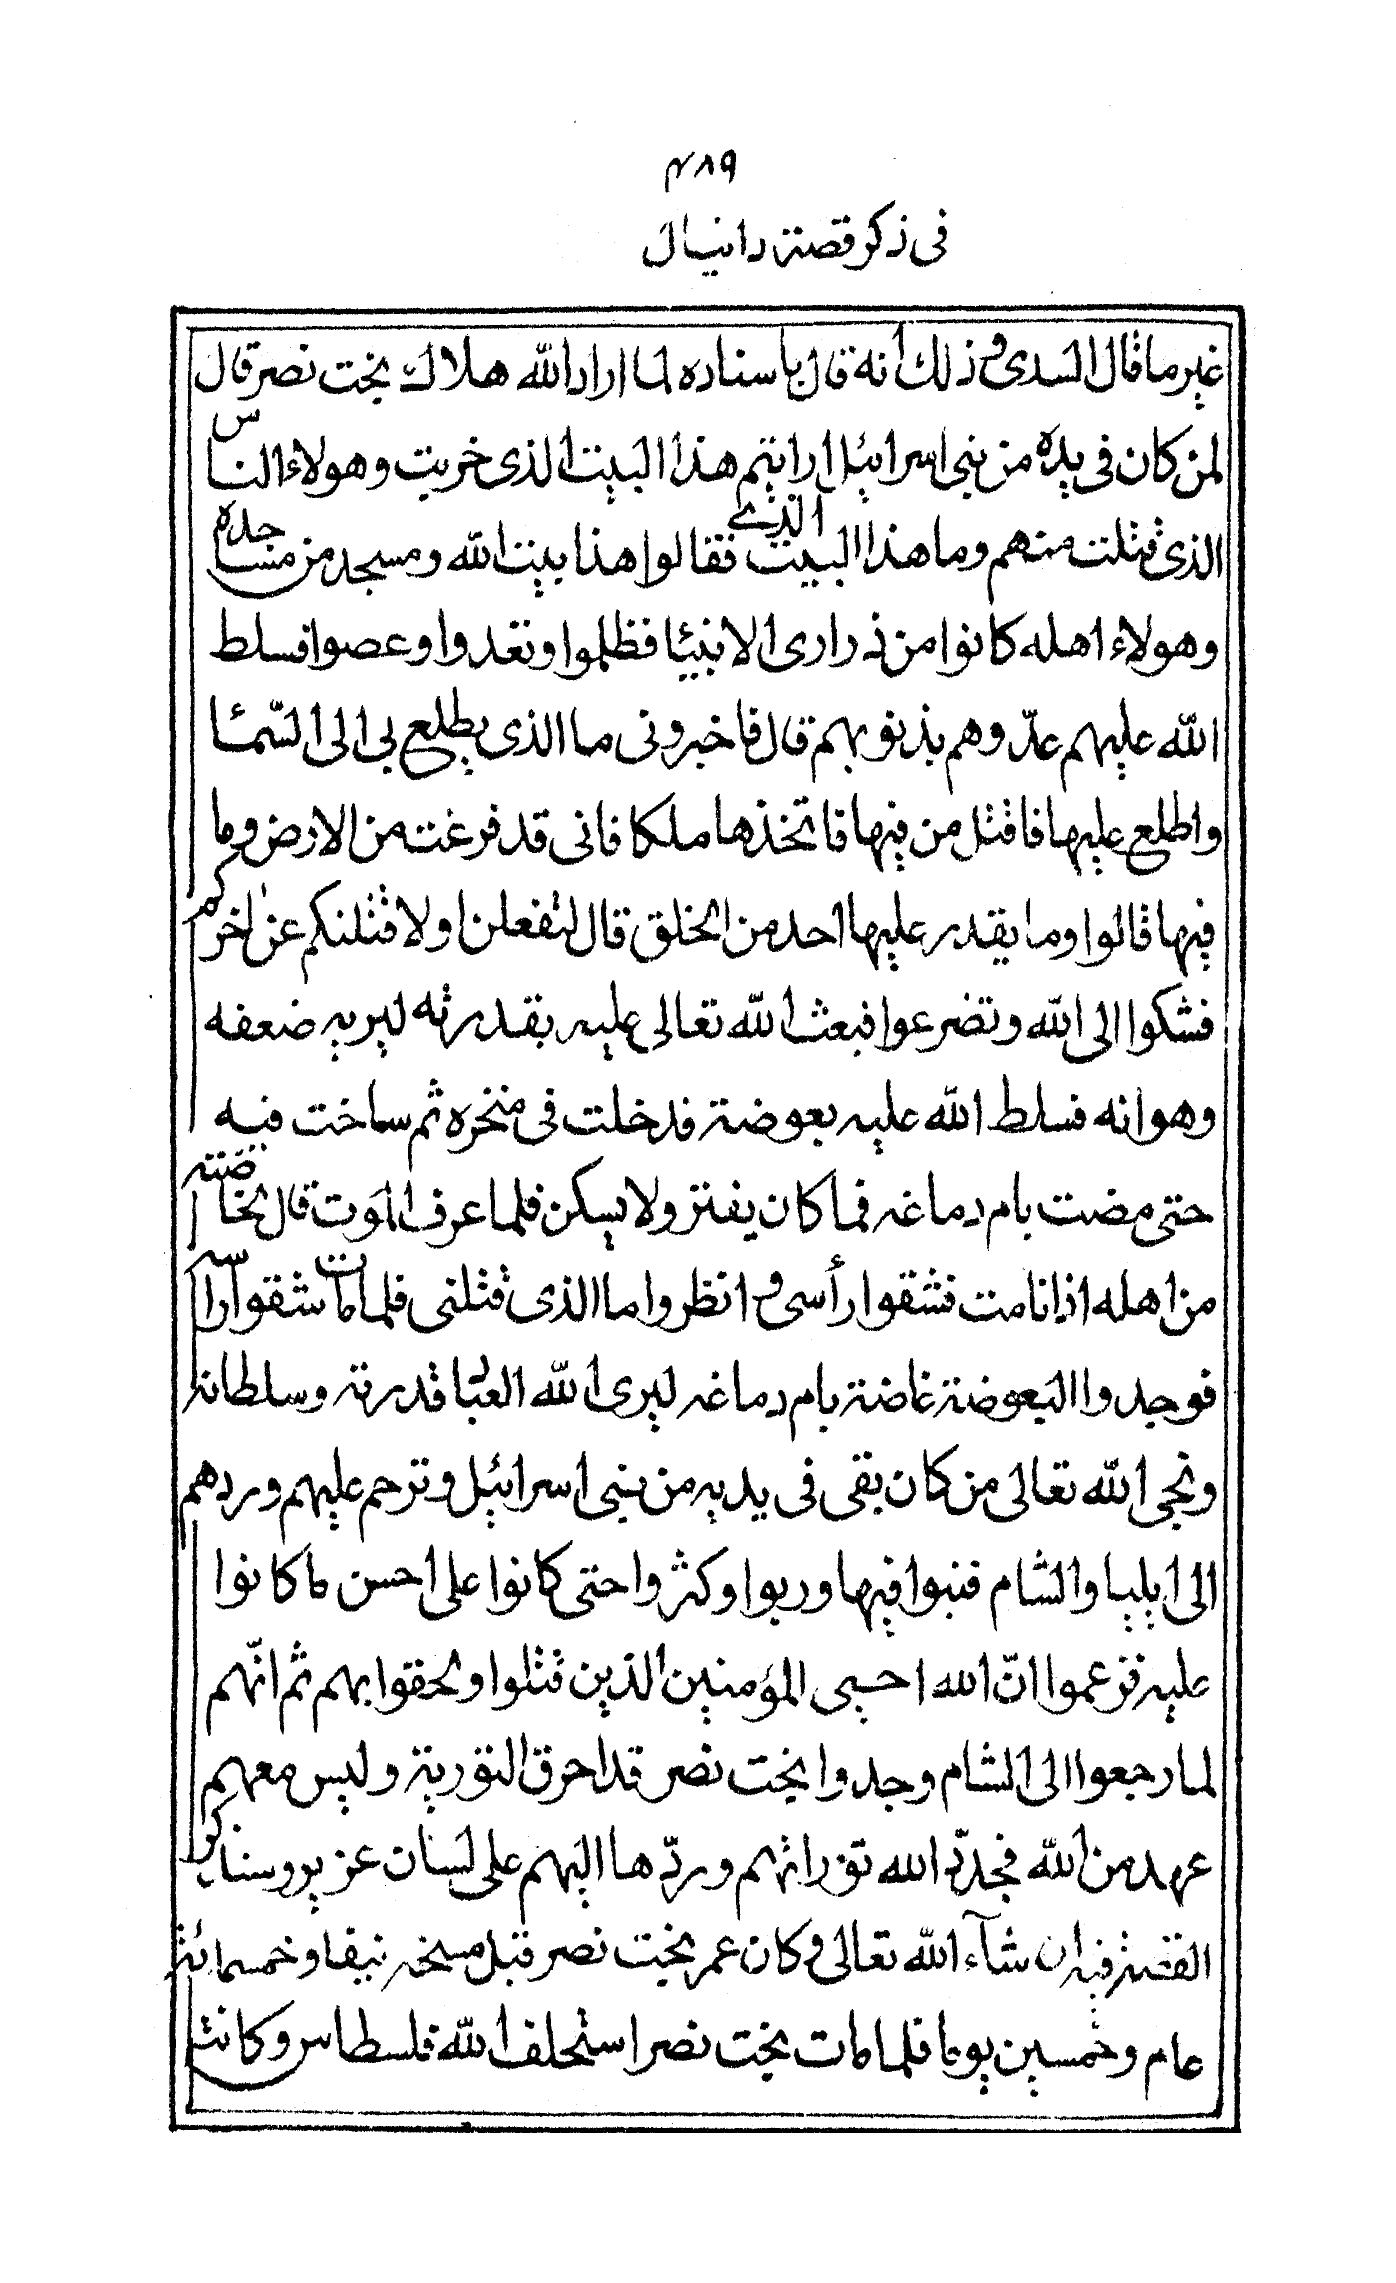 ۴۸۹
فى ذكر قصة دانيال
غير ما قال السدى و ذلك انه قال باسناده لما اراد الله هلاك بخت نصر قال
لمن كان فى يده من بنى اسرائيل ارايتم هذا البيت الذى خربت وهولاء الناس
الذى قتلت منهم وما هذا البيت الذى فقالوا هذا بيت الله ومسجد من مساجده
وهولاء اهله كانوا من ذرارى الانبيئا فظلموا وتعدوا وعصوا فسلط
الله عليهم عدّوهم بذنوبهم قال فاخبرونى ما الذى يطلع بى الى السّمئا
واطلع عليها فاقتل من فيها فاتخذها ملكا فانى قد فرغت من الارض وما
فيها قالوا وما يقدر عليها احد من الخلق قال لتفعلن او لا قتلنكم عن اخركم
فشكوا الى الله وتضرعوا فبعث الله تعالى عليه بقدرته ليريه ضعفه
وهو انه فسلط الله عليه بعوضة فدخلت فى منخره ثم ساخت فيه
حتى مضت بام دماغه فما كان يفتر ولا يسكن فلما عرف الموت قال لخاصته
من اهله اذا نامت فشقوا رأسى و انظروا ما الذى قتلنى فلما مات شقوا راسه
فوجدوا البعوضة غاضة بام دماغه ليرى الله العبا قدرته وسلطانه
ونجى الله تعالى من كان بقى فى يديه من بنى اسرائيل وترحم عليهم وردهم
الى ايليا والشام فنبوا فيها وربوا وكثروا حتى كانوا على احسن ما كانوا
عليه فزعموا انّ الله احيى المؤمنين الذين قتلوا ولحقوا بهم ثم انّهم
لما رجعوا الى الشام وجدوا بخت نصر قد احرق التورية وليس معهم
عهد من الله فجدّد الله توراتهم وردّها اليهم على لسان عزير وسناكر
القصة فيه ان شآء الله تعالى و كان عمر بخت نصر قبل مسخه نيفا وخمسمائة
عام وخمسين يوما فلما مات بخت نصر استخلف الله فلسطاس وكانت